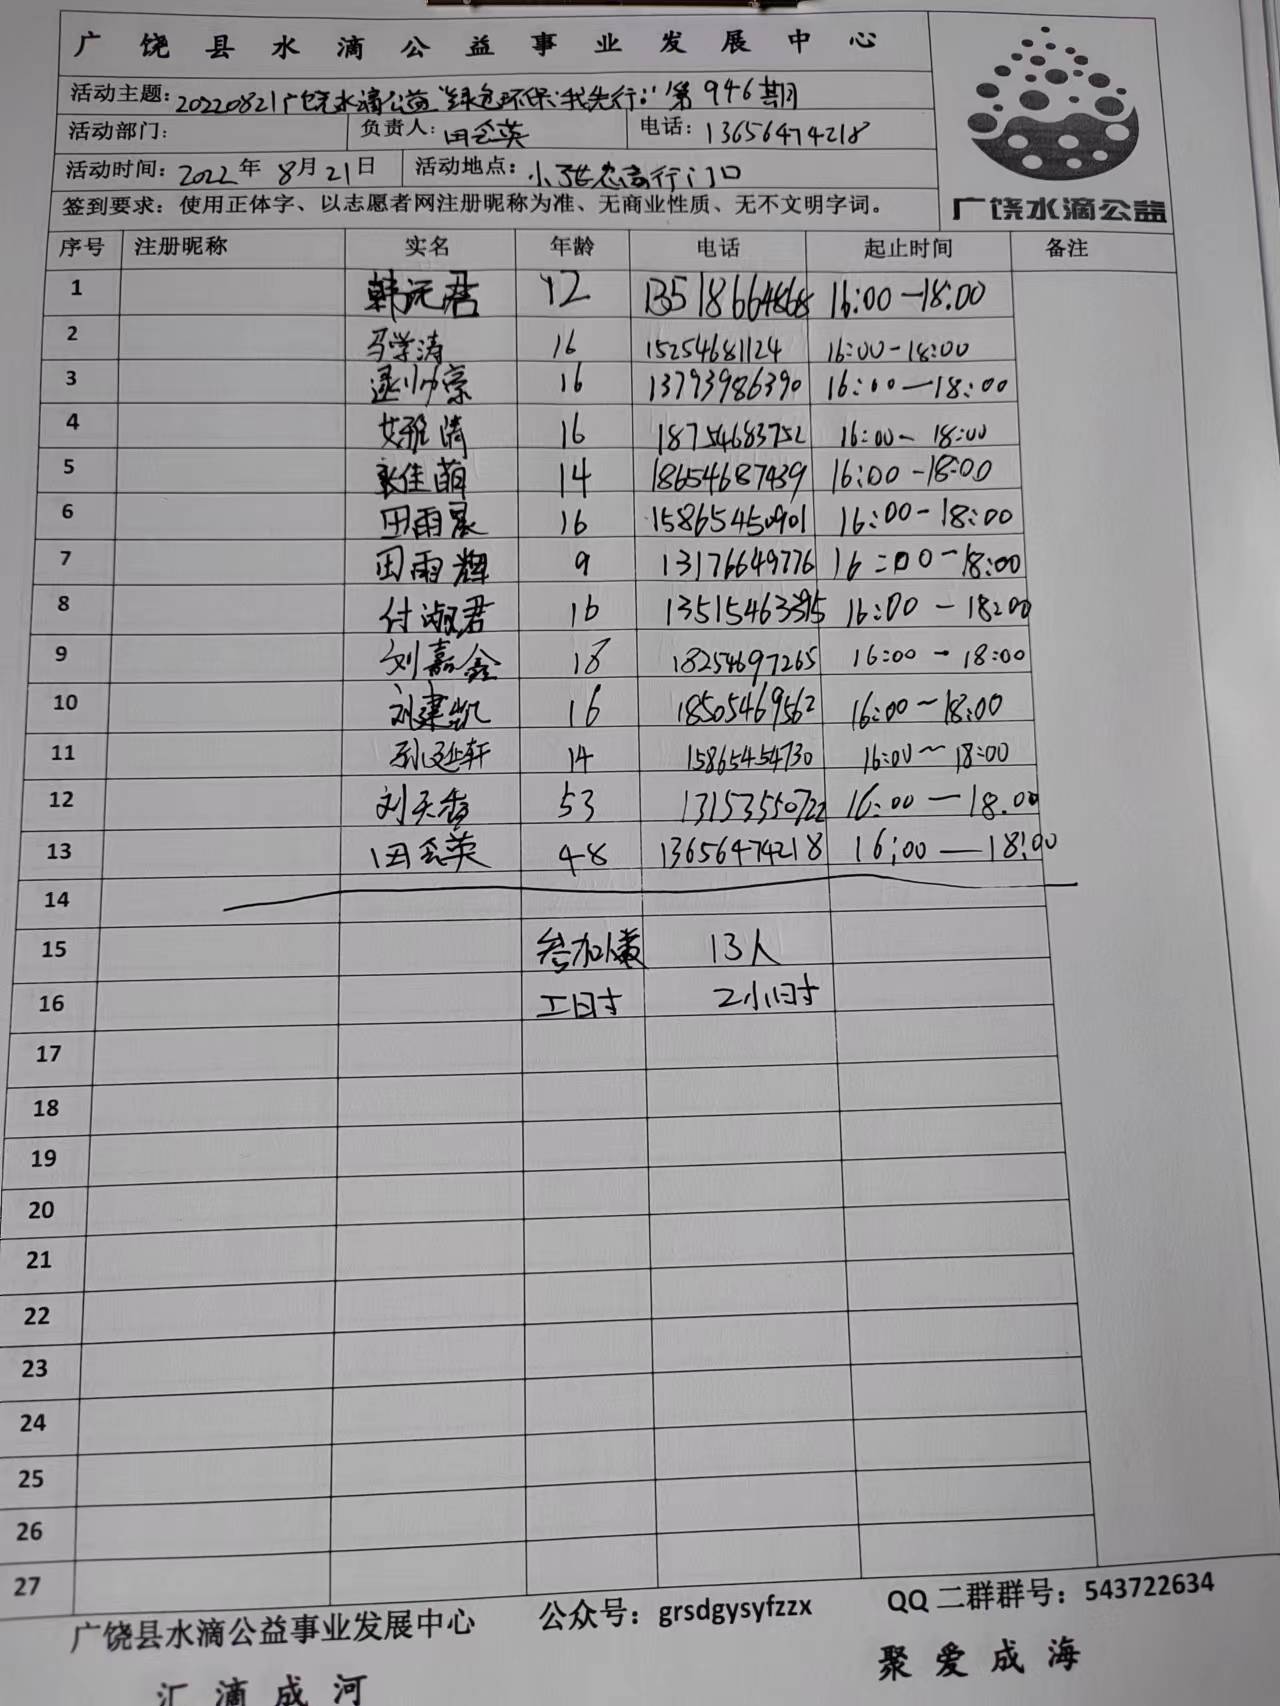 广饶县水滴公益事业发展中心
活动主题：20220821广饶水滴公益"绿色环保 我先行"第946期
活动部门： 负责人：田会英 电话：13656474218
活动时间：2022年8月21日 活动地点：小张农商行门口
签到要求：使用正体字、以志愿者网注册昵称为准、无商业性质、无不文明字词。
广饶水滴公益
序号 注册昵称 实名 年龄 电话 起止时间 备注
1 韩元君 12 13518664868 16:00-18:00
2 马学涛 16 15254681124 16:00-18:00
3 16 13793986390 16:00-18:00
4 艾雅倩 16 18754683752 16:00-18:00
5 张佳萌 14 18654687439 16:00-18:00
6 田雨晨 16 15865450901 16:00-18:00
7 田雨辉 9 13176649776 16:00-18:00
8 付淑君 16 13515463395 16:00-18:00
9 刘嘉鑫 18 18254697265 16:00-18:00
10 刘建凯 16 18505469562 16:00~18:00
11 孙延轩 14 15865454730 16:00~18:00
12 刘天香 53 13153550722 16:00-18.00
13 田会英 48 13656474218 16:00-18:00
14
15 参加人数 13人
16 工时 2小时
17
18
19
20
21
22
23
24
25
26
27
广饶县水滴公益事业发展中心 公众号：grsdgysyfzzx QQ二群群号：543722634
汇滴成河 聚爱成海